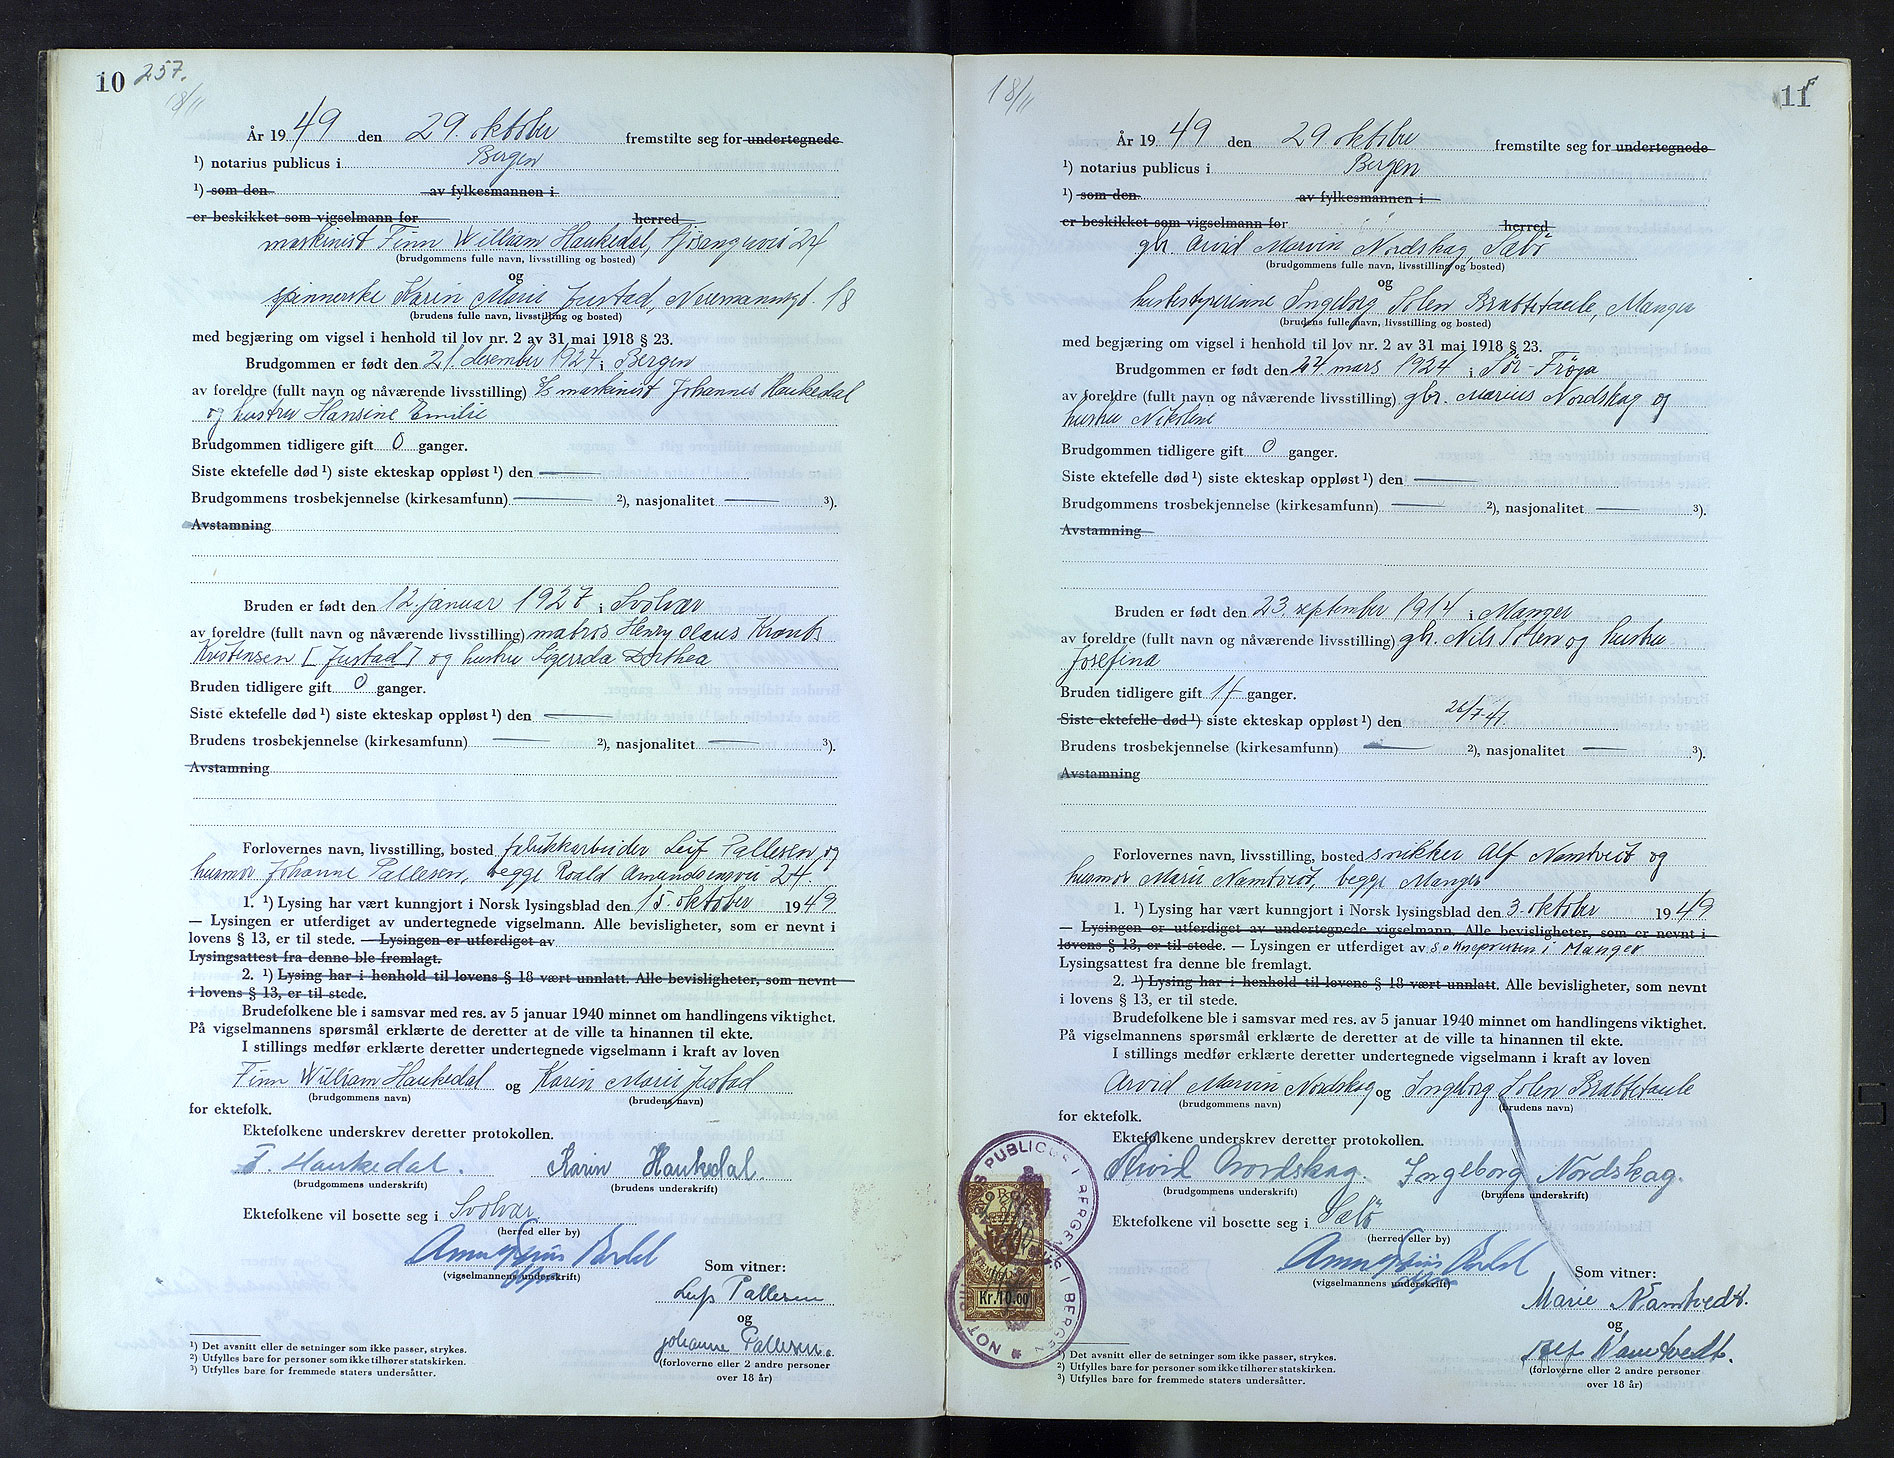 10 257.
18/11
År 1949 den 29. oktober fremstilte seg for undertegnede
¹) notarius publicus i Bergen
¹) som den av fylkesmannen i
er beskikket som vigselmann for herred
maskinist Finn William Haukedal, Fjøsangerveien 24
(brudgommens fulle navn, livsstilling og bosted)
og
spinnerske Karin Marie Justad, 18
(brudens fulle navn, livsstilling og bosted)
med begjæring om vigsel i henhold til lov nr. 2 av 31 mai 1918 § 23.
Brudgommen er født den 21. desember 1924 i Bergen
av foreldre (fullt navn og nåværende livsstilling) maskinist Johannes Haukedal
og hustru Hansine Emilie
Brudgommen tidligere gift 0 ganger.
Siste ektefelle død ¹) siste ekteskap oppløst ¹) den
Brudgommens trosbekjennelse (kirkesamfunn) ²), nasjonalitet ³).
Avstamning
Bruden er født den 12. januar 1927 i Svolvær
av foreldre (fullt navn og nåværende livsstilling) matros Henry Olaus
Kristensen [Justad] og hustru Dorthea
Bruden tidligere gift 0 ganger.
Siste ektefelle død ¹) siste ekteskap oppløst ¹) den
Brudens trosbekjennelse (kirkesamfunn) ²), nasjonalitet ³).
Avstamning
Forlovernes navn, livsstilling, bosted fabrikkarbeider Leif Pallesen og
husmor Johanne Pallesen, begge Roald Amundsensvei 24.
1. ¹) Lysing har vært kunngjort i Norsk lysingsblad den 15. oktober 1949
— Lysingen er utferdiget av undertegnede vigselmann. Alle bevisligheter, som er nevnt i
lovens § 13, er til stede. — Lysingen er utferdiget av
Lysingsattest fra denne ble fremlagt.
2. ¹) Lysing har i henhold til lovens § 18 vært unnlatt. Alle bevisligheter, som nevnt
i lovens § 13, er til stede.
Brudefolkene ble i samsvar med res. av 5 januar 1940 minnet om handlingens viktighet.
På vigselmannens spørsmål erklærte de deretter at de ville ta hinannen til ekte.
I stillings medfør erklærte deretter undertegnede vigselmann i kraft av loven
Finn William Haukedal og Karin Marie Justad
(brudgommens navn) (brudens navn)
for ektefolk.
Ektefolkene underskrev deretter protokollen.
F. Haukedal. Karin Haukedal.
(brudgommens underskrift) (brudens underskrift)
Ektefolkene vil bosette seg i Svolvær
(herred eller by)
(vigselmannens underskrift)
Som vitner:
Leif Pallesen
og
Johanne Pallesen.
(forloverne eller 2 andre personer
over 18 år)
¹) Det avsnitt eller de setninger som ikke passer, strykes.
²) Utfylles bare for personer som ikke tilhører statskirken.
³) Utfylles bare for fremmede staters undersåtter.
18/11 11
År 1949 den 29 oktober fremstilte seg for undertegnede
¹) notarius publicus i Bergen
¹) som den av fylkesmannen i
er beskikket som vigselmann for herred
gbr. Arvid Marvin Nordskag, Sæbø
(brudgommens fulle navn, livsstilling og bosted)
og
husbestyrerinne Ingeborg Solen Brattetaule, Manger
(brudens fulle navn, livsstilling og bosted)
med begjæring om vigsel i henhold til lov nr. 2 av 31 mai 1918 § 23.
Brudgommen er født den 24. mars 1924 i Sør-Frøya
av foreldre (fullt navn og nåværende livsstilling) gbr. Marius Nordskag og
hustru Nikoline
Brudgommen tidligere gift 0 ganger.
Siste ektefelle død ¹) siste ekteskap oppløst ¹) den
Brudgommens trosbekjennelse (kirkesamfunn) ²), nasjonalitet ³).
Avstamning
Bruden er født den 23. september 1914 i Manger
av foreldre (fullt navn og nåværende livsstilling) gbr. Nils Solen og hustru
Josefine
Bruden tidligere gift 1 ganger.
Siste ektefelle død ¹) siste ekteskap oppløst ¹) den 26/7-47.
Brudens trosbekjennelse (kirkesamfunn) ²), nasjonalitet ³).
Avstamning
Forlovernes navn, livsstilling, bosted snikker Alf Namtvedt og
husmor Marie Namtvedt, begge Manger
1. ¹) Lysing har vært kunngjort i Norsk lysingsblad den 3. oktober 1949
— Lysingen er utferdiget av undertegnede vigselmann. Alle bevisligheter, som er nevnt i
lovens § 13, er til stede. — Lysingen er utferdiget av soknepresten i Manger
Lysingsattest fra denne ble fremlagt.
2. ¹) Lysing har i henhold til lovens § 18 vært unnlatt. Alle bevisligheter, som nevnt
i lovens § 13, er til stede.
Brudefolkene ble i samsvar med res. av 5 januar 1940 minnet om handlingens viktighet.
På vigselmannens spørsmål erklærte de deretter at de ville ta hinannen til ekte.
I stillings medfør erklærte deretter undertegnede vigselmann i kraft av loven
Arvid Marvin Nordskag og Ingeborg Solen Brattetaule
(brudgommens navn) (brudens navn)
for ektefolk.
Ektefolkene underskrev deretter protokollen.
Arvid Nordskag. Ingeborg Nordskag.
(brudgommens underskrift) (brudens underskrift)
Ektefolkene vil bosette seg i Sæbø
(herred eller by)
(vigselmannens underskrift)
NOTARIUS PUBLICUS I BERGEN
Kr. 10.00
Som vitner:
Marie Namtvedt.
og
Alf Namtvedt.
(forloverne eller 2 andre personer
over 18 år)
¹) Det avsnitt eller de setninger som ikke passer, strykes.
²) Utfylles bare for personer som ikke tilhører statskirken.
³) Utfylles bare for fremmede staters undersåtter.